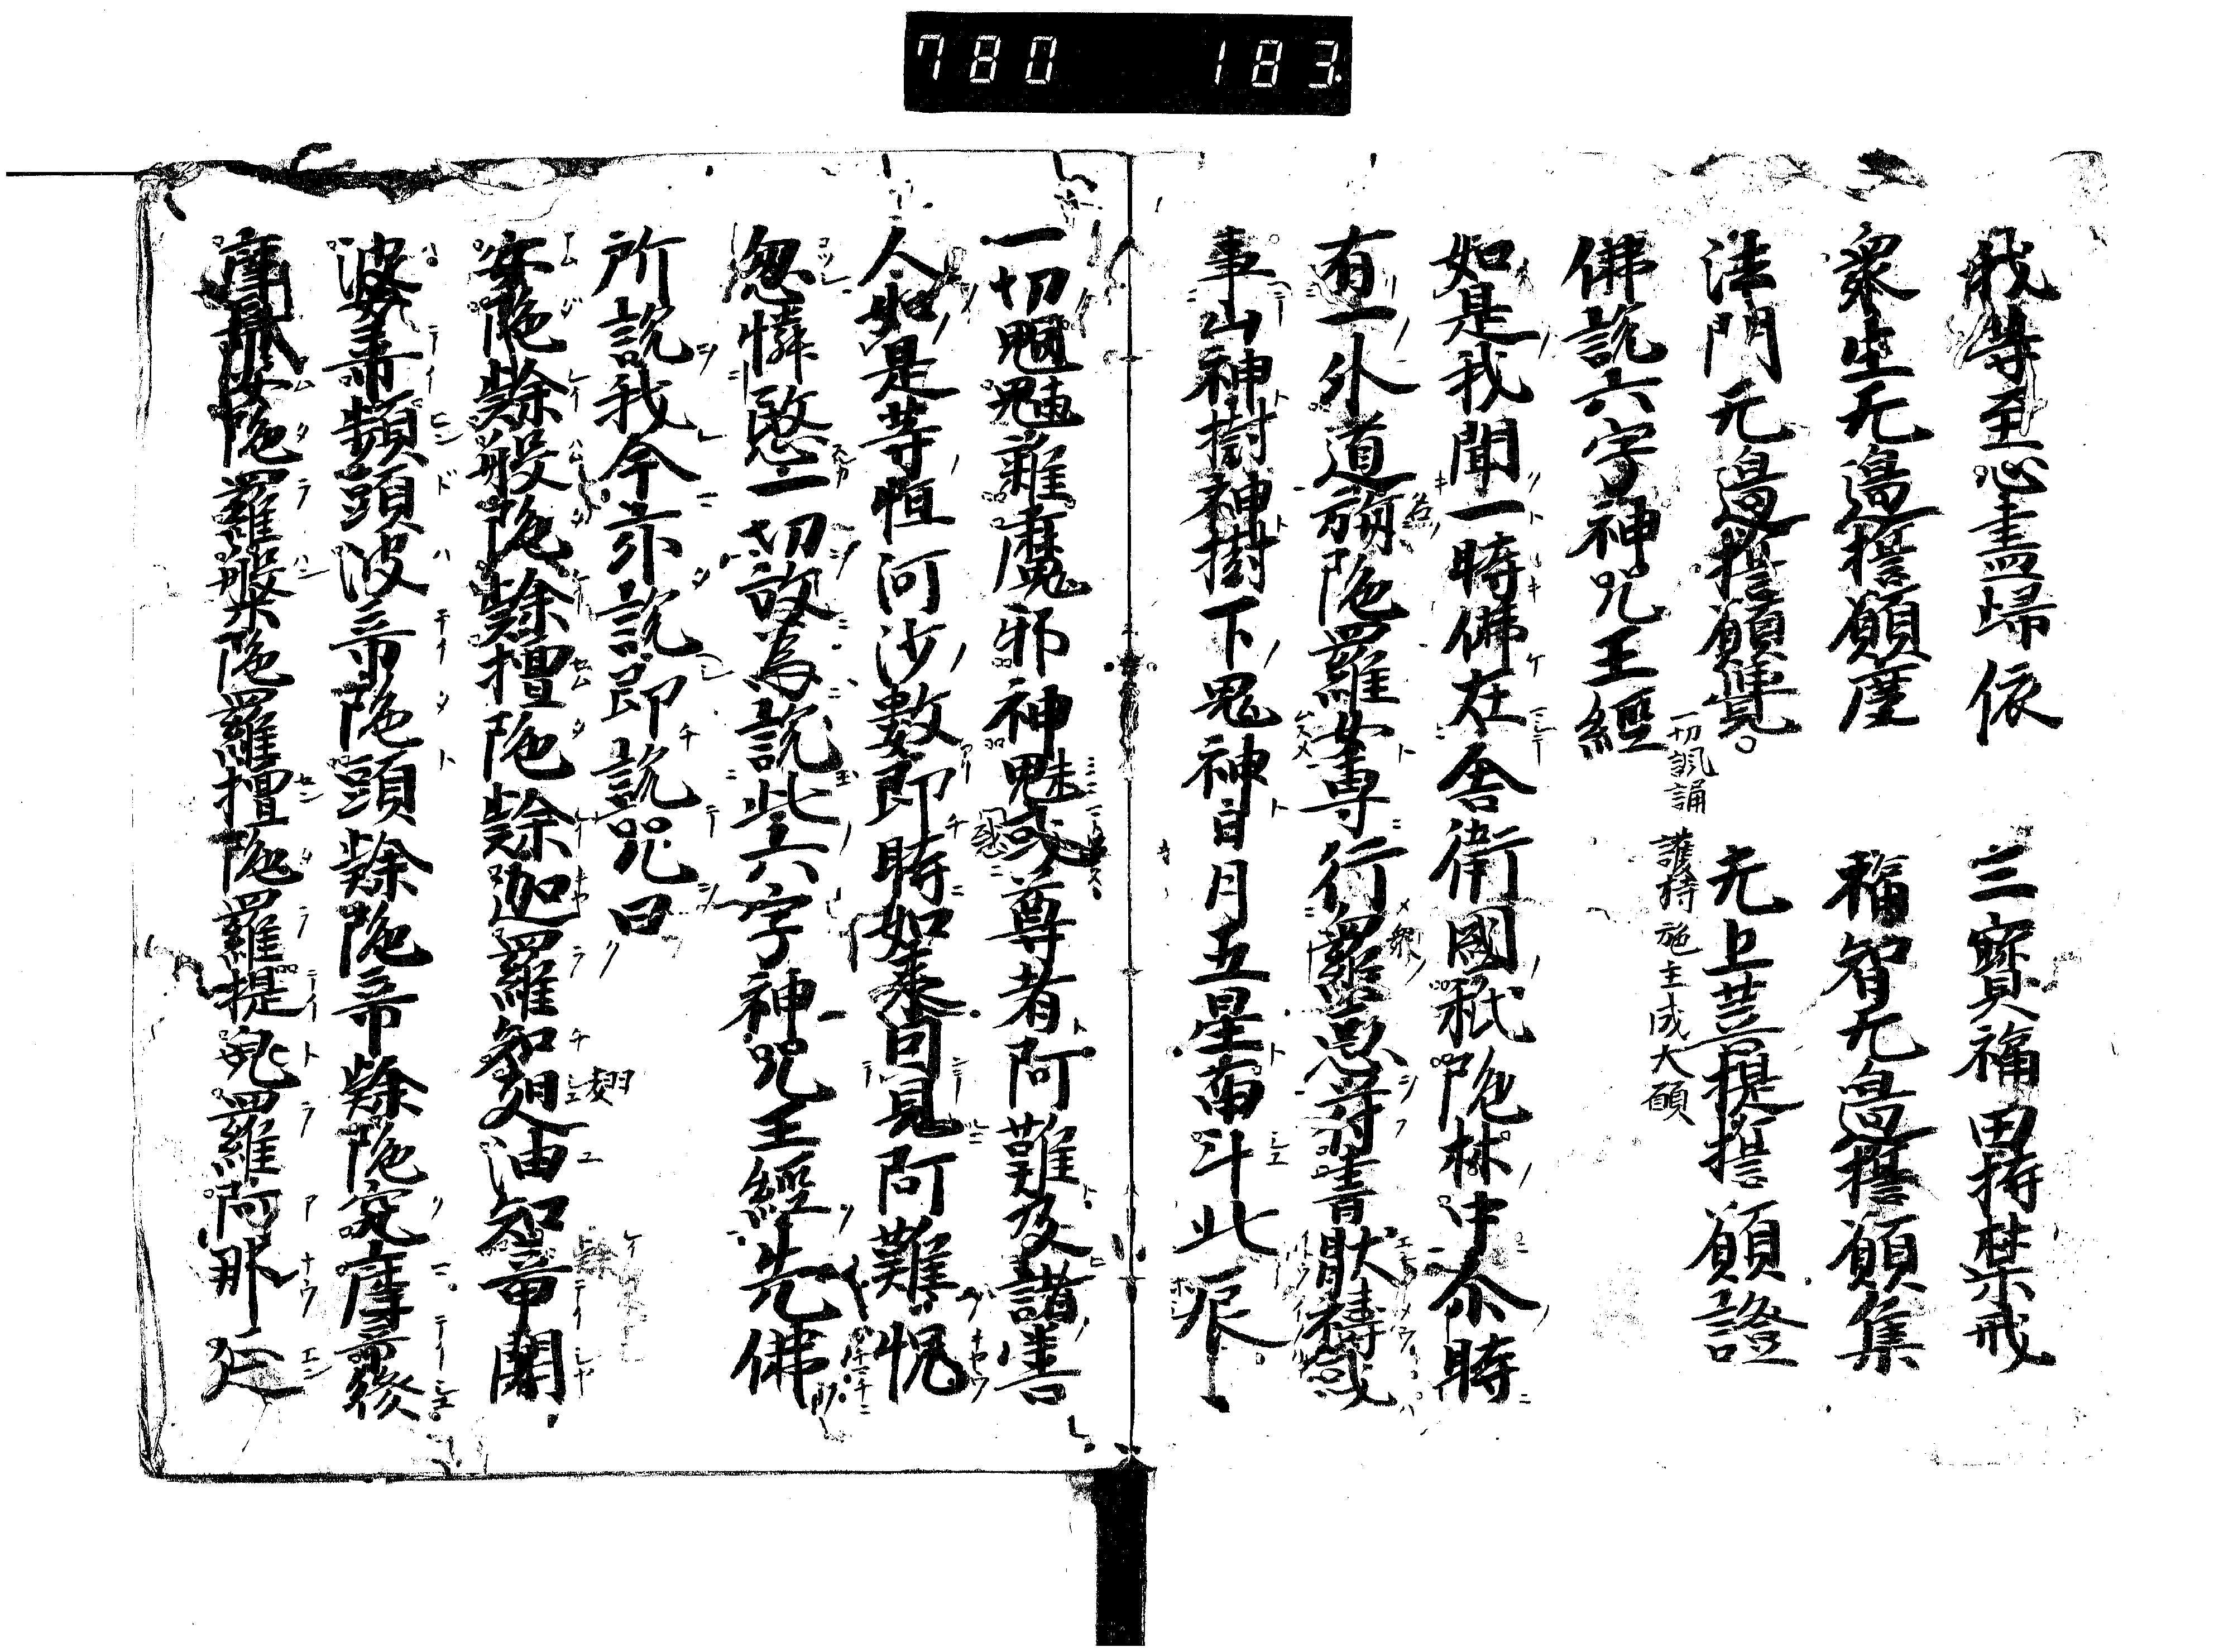 780 183
我等至心盡歸依 三寶福田持禁戒
衆生无邊誓願度 福智无邊誓願集
法門无邊誓願覺 无上菩提誓願證
一切諷誦 護持施主成大願
佛說六字神咒王經
如是我聞一時佛在舍衛國祇陁林中尒時
有一外道旃陁羅女專行羅惡符書猒禱或
事山神樹神樹下鬼神日月五星南斗北辰
一切魍魎雜魔邪神魅或尊者阿難及諸善
人如是等恒河沙數即時如來同見阿難愰
忽憐愍一切故為說此六字神咒王經先佛
所說我今亦說即說咒曰
安陁𨽻般陁𨽻檀陁𨽻迦羅知翅油知帝闍
婆帝頻頭波帝陁頭𨽻陁帝𨽻陁究摩帝
安陁羅槃陁羅檀陁羅提兜羅阿那延